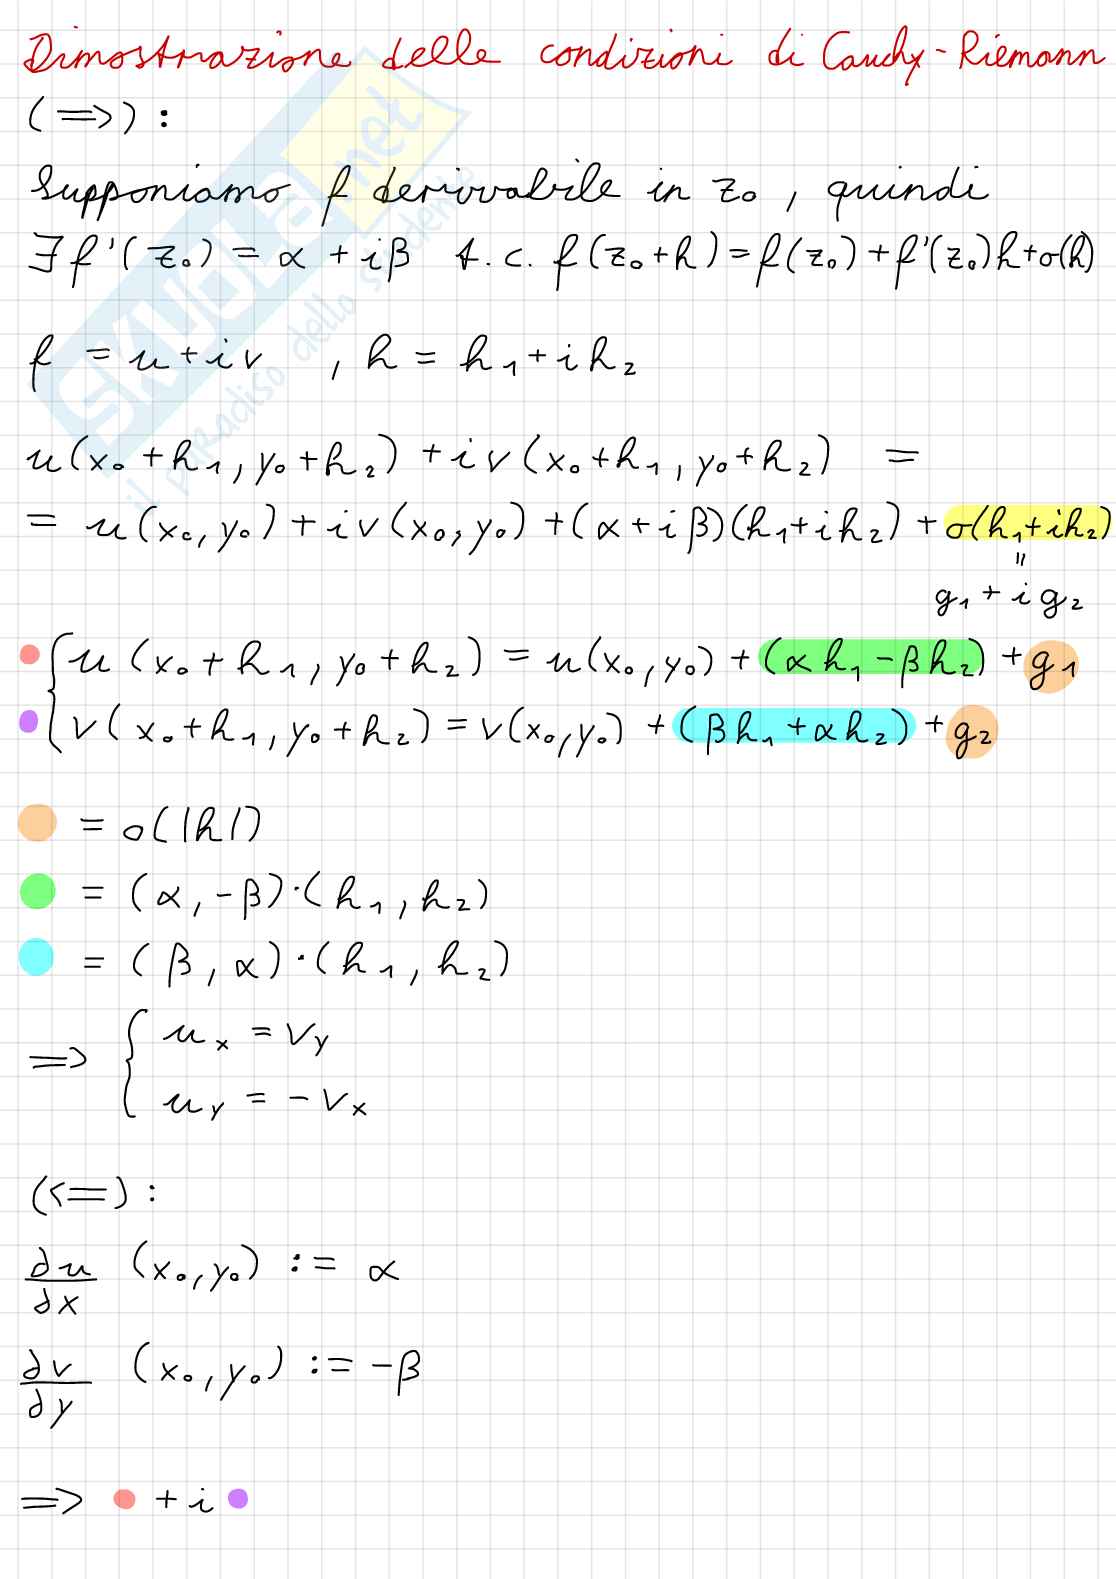 Dimostrazione delle condizioni di Cauchy-Riemann
(=>) :
Supponiamo f derivabile in z₀ , quindi
∃ f'(z₀) = α + iβ t.c. f(z₀+h) = f(z₀) + f'(z₀)h + o(h)
f = u + iv , h = h₁ + ih₂
u(x₀+h₁, y₀+h₂) + iv(x₀+h₁, y₀+h₂) =
= u(x₀, y₀) + iv(x₀, y₀) + (α + iβ)(h₁+ih₂) + o(h₁+ih₂)
=
g₁ + i g₂
{ u(x₀+h₁, y₀+h₂) = u(x₀, y₀) + (αh₁ - βh₂) + g₁
v(x₀+h₁, y₀+h₂) = v(x₀, y₀) + (βh₁ + αh₂) + g₂
= o(|h|)
= (α, -β)·(h₁, h₂)
= (β, α)·(h₁, h₂)
=> { uₓ = v_y
u_y = - vₓ
(<=) :
∂u/∂x (x₀, y₀) := α
∂v/∂y (x₀, y₀) := -β
=> ● + i ●
SKUOLA.net
il paradiso dello studente